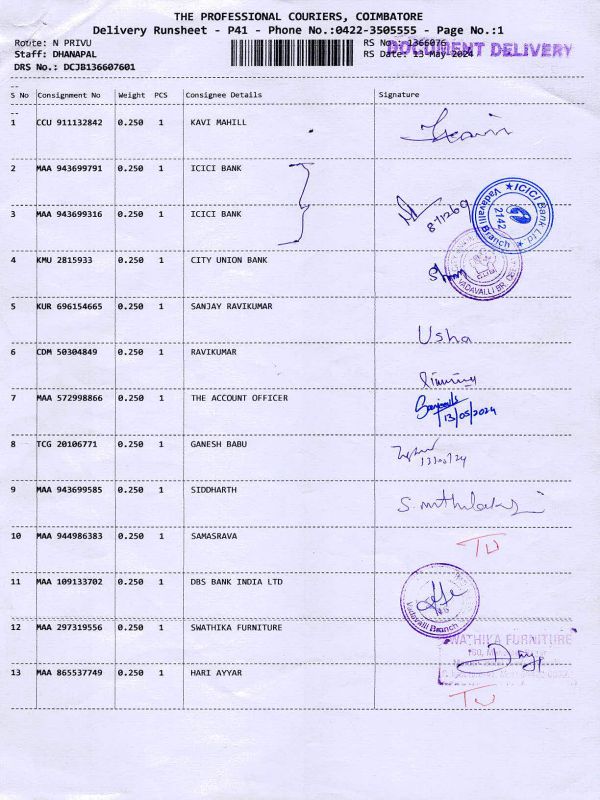 THE PROFESSIONAL COURIERS, COIMBATORE
Delivery Runsheet - P41 - Phone No.:0422-3505555 - Page No.:1
Route: N PRIVU RS No.: 1366076 DOCUMENT DELIVERY
Staff: DHANAPAL RS Date: 13-May-2024
DRS No.: DCJB136607601
S No Consignment No Weight PCS Consignee Details Signature
1 CCU 911132842 0.250 1 KAVI MAHILL
2 MAA 943699791 0.250 1 ICICI BANK
ICICI Bank Ltd
2142
Vadavalli Branch
3 MAA 943699316 0.250 1 ICICI BANK
4 KMU 2815933 0.250 1 CITY UNION BANK
VADAVALLI BR
5 KUR 696154665 0.250 1 SANJAY RAVIKUMAR Usha
6 CDM 50304849 0.250 1 RAVIKUMAR
7 MAA 572998866 0.250 1 THE ACCOUNT OFFICER
13/05/2024
8 TCG 20106771 0.250 1 GANESH BABU
9 MAA 943699585 0.250 1 SIDDHARTH
10 MAA 944986383 0.250 1 SAMASRAVA
11 MAA 109133702 0.250 1 DBS BANK INDIA LTD
Vadavalli Branch
12 MAA 297319556 0.250 1 SWATHIKA FURNITURE
SWATHIKA FURNITURE
13 MAA 865537749 0.250 1 HARI AYYAR